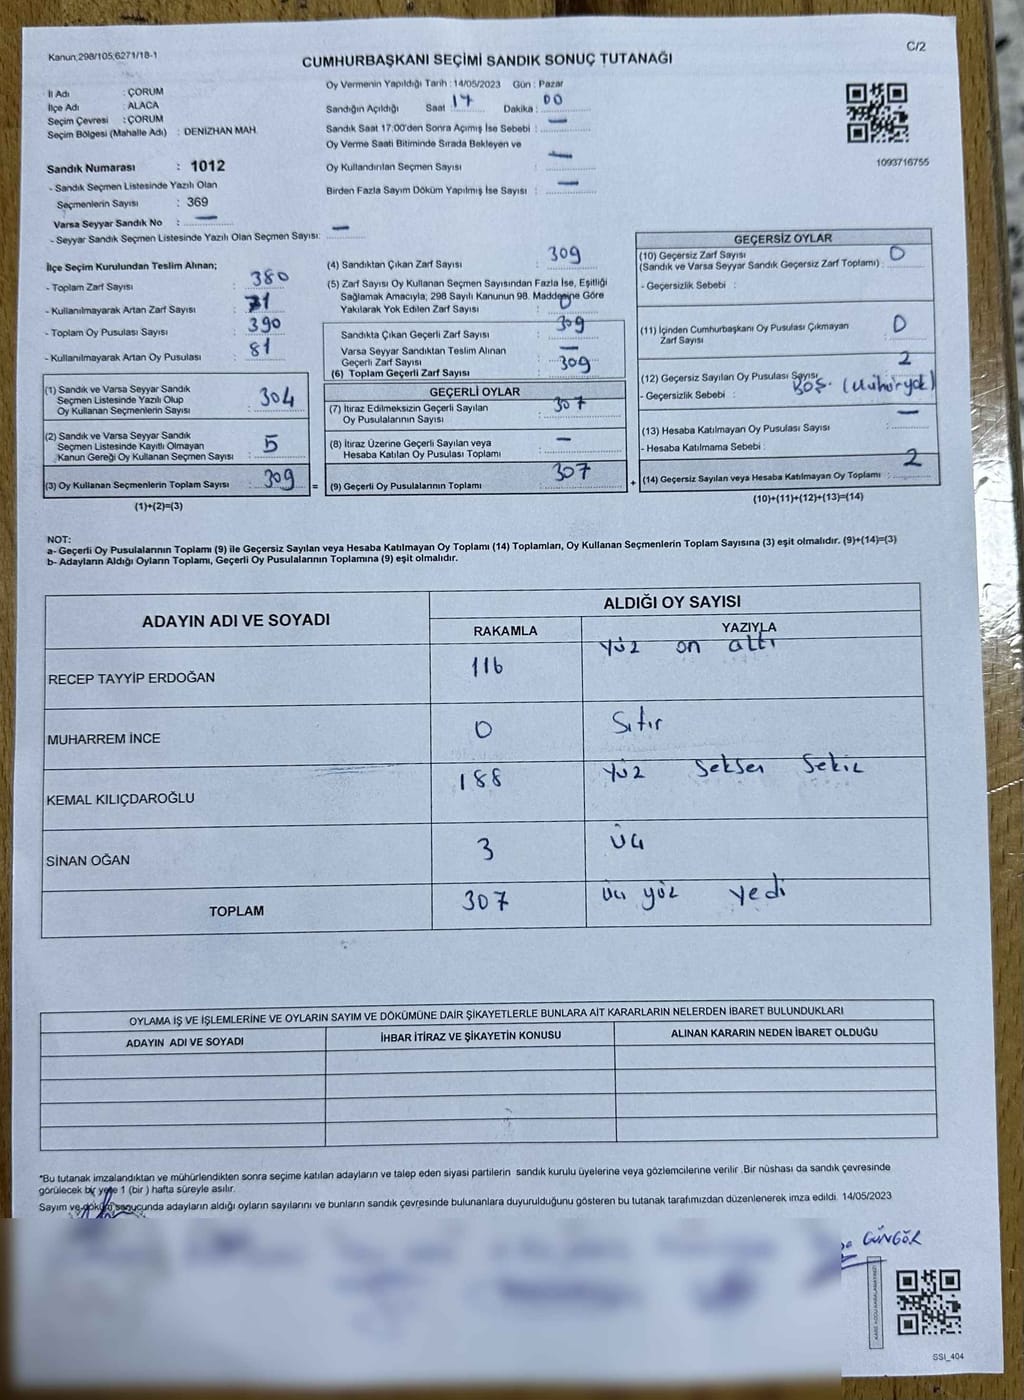 Kanun;298/105,6271/18-1
C/2
CUMHURBAŞKANI SEÇİMİ SANDIK SONUÇ TUTANAĞI
İl Adı : ÇORUM
İlçe Adı : ALACA
Seçim Çevresi : ÇORUM
Seçim Bölgesi (Mahalle Adı) : DENİZHAN MAH.
Sandık Numarası : 1012
- Sandık Seçmen Listesinde Yazılı Olan
Seçmenlerin Sayısı : 369
Varsa Seyyar Sandık No : —
- Seyyar Sandık Seçmen Listesinde Yazılı Olan Seçmen Sayısı: —
Oy Vermenin Yapıldığı Tarih : 14/05/2023 Gün : Pazar
Sandığın Açıldığı Saat 17 Dakika : 00
Sandık Saat 17:00'den Sonra Açımış İse Sebebi : —
Oy Verme Saati Bitiminde Sırada Bekleyen ve
Oy Kullandırılan Seçmen Sayısı : —
Birden Fazla Sayım Döküm Yapılmış İse Sayısı : —
1093716755
İlçe Seçim Kurulundan Teslim Alınan;
- Toplam Zarf Sayısı : 380
- Kullanılmayarak Artan Zarf Sayısı : 71
- Toplam Oy Pusulası Sayısı : 390
- Kullanılmayarak Artan Oy Pusulası : 81
(1) Sandık ve Varsa Seyyar Sandık
Seçmen Listesinde Yazılı Olup
Oy Kullanan Seçmenlerin Sayısı : 304
(2) Sandık ve Varsa Seyyar Sandık
Seçmen Listesinde Kayıtlı Olmayan
Kanun Gereği Oy Kullanan Seçmen Sayısı : 5
(3) Oy Kullanan Seçmenlerin Toplam Sayısı : 309
(1)+(2)=(3)
(4) Sandıktan Çıkan Zarf Sayısı : 309
(5) Zarf Sayısı Oy Kullanan Seçmen Sayısından Fazla İse, Eşitliği
Sağlamak Amacıyla; 298 Sayılı Kanunun 98. Maddesine Göre
Yakılarak Yok Edilen Zarf Sayısı : 0
Sandıkta Çıkan Geçerli Zarf Sayısı : 309
Varsa Seyyar Sandıktan Teslim Alınan
Geçerli Zarf Sayısı : —
(6) Toplam Geçerli Zarf Sayısı : 309
GEÇERLİ OYLAR
(7) İtiraz Edilmeksizin Geçerli Sayılan
Oy Pusulalarının Sayısı : 307
(8) İtiraz Üzerine Geçerli Sayılan veya
Hesaba Katılan Oy Pusulası Toplamı : —
= (9) Geçerli Oy Pusulalarının Toplamı : 307
GEÇERSİZ OYLAR
(10) Geçersiz Zarf Sayısı
(Sandık ve Varsa Seyyar Sandık Geçersiz Zarf Toplamı) : 0
- Geçersizlik Sebebi :
(11) İçinden Cumhurbaşkanı Oy Pusulası Çıkmayan
Zarf Sayısı : 0
(12) Geçersiz Sayılan Oy Pusulası Sayısı 2
- Geçersizlik Sebebi : BOŞ. (Mühür yok)
(13) Hesaba Katılmayan Oy Pusulası Sayısı : —
- Hesaba Katılmama Sebebi :
+ (14) Geçersiz Sayılan veya Hesaba Katılmayan Oy Toplamı : 2
(10)+(11)+(12)+(13)=(14)
NOT:
a- Geçerli Oy Pusulalarının Toplamı (9) ile Geçersiz Sayılan veya Hesaba Katılmayan Oy Toplamı (14) Toplamları, Oy Kullanan Seçmenlerin Toplam Sayısına (3) eşit olmalıdır. (9)+(14)=(3)
b- Adayların Aldığı Oyların Toplamı, Geçerli Oy Pusulalarının Toplamına (9) eşit olmalıdır.
ADAYIN ADI VE SOYADI
ALDIĞI OY SAYISI
RAKAMLA YAZIYLA
RECEP TAYYİP ERDOĞAN 116 Yüz on altı
MUHARREM İNCE 0 Sıfır
KEMAL KILIÇDAROĞLU 188 Yüz Seksen Sekiz
SİNAN OĞAN 3 üç
TOPLAM 307 üç yüz yedi
OYLAMA İŞ VE İŞLEMLERİNE VE OYLARIN SAYIM VE DÖKÜMÜNE DAİR ŞİKAYETLERLE BUNLARA AİT KARARLARIN NELERDEN İBARET BULUNDUKLARI
ADAYIN ADI VE SOYADI İHBAR İTİRAZ VE ŞİKAYETİN KONUSU ALINAN KARARIN NEDEN İBARET OLDUĞU
*Bu tutanak imzalandıktan ve mühürlendikten sonra seçime katılan adayların ve talep eden siyasi partilerin sandık kurulu üyelerine veya gözlemcilerine verilir .Bir nüshası da sandık çevresinde
görülecek bir yere 1 (bir ) hafta süreyle asılır.
Sayım ve döküm sonucunda adayların aldığı oyların sayılarını ve bunların sandık çevresinde bulunanlara duyurulduğunu gösteren bu tutanak tarafımızdan düzenlenerek imza edildi. 14/05/2023
GÜNGÖR
SSI_404